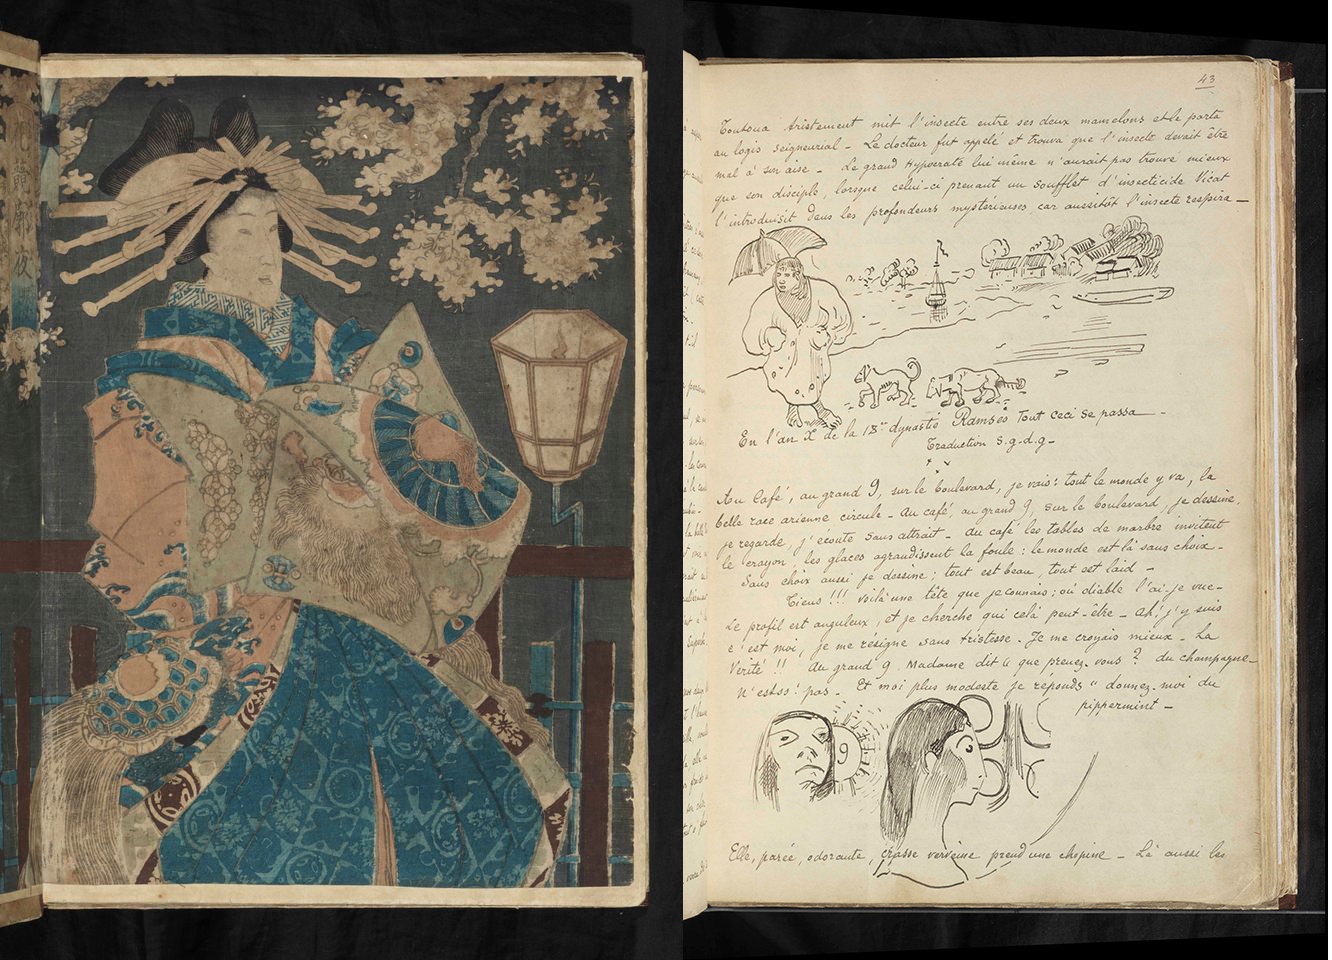 43
Toutoua tristement mit l'insecte entre ses deux mamelons et le porta
au logis seigneurial - Le docteur fut appelé et trouva que l'insecte devait être
mal à son aise - Le grand Hypocrate lui même n'aurait pas trouvé mieux
que son disciple lorsque celui-ci prenant un soufflet d'insecticide Vicat
l'introduisit dans les profondeurs mystérieuses car aussitôt l'insecte respira -
En l'an X de la 18me dynastie Ramsès Tout ceci se passa -
Traduction s.g.d.g -
Au Café, au grand 9, sur le boulevard, je vais: tout le monde y va, la
belle race arienne circule - Au café, au grand 9, sur le boulevard, je dessine,
je regarde, j'écoute sans attrait - du café les tables de marbre invitent
le crayon, les glaces agrandissent la foule: le monde est là sans choix -
Sans choix aussi je dessine; tout est beau, tout est laid -
Tiens!!! voilà une tête que je connais; où diable l'ai-je vue -
Le profil est anguleux, et je cherche qui celà peut-être - Ah! j'y suis
c'est moi, je me résigne sans tristesse. Je me croyais mieux - La
Vérité!! Au grand 9. Madame dit que prenez-vous? du champagne
N'estss! pas - Et moi plus modeste je réponds "donnez-moi du
pippermint -
9
Elle, parée, odorante, crasse verveine prend une chopine - Là aussi les